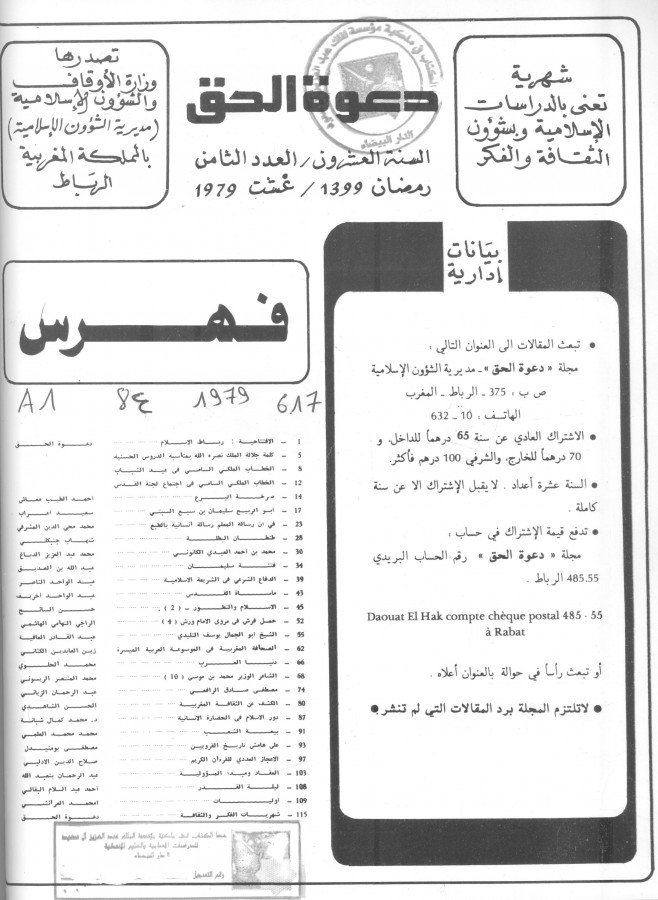 شهرية
تعنى بالدراسات
الإسلامية وبشؤون
الثقافة والفكر
دعوة الحق
السنة العشرون / العدد الثامن
رمضان 1399 / غشت 1979
تصدرها
وزارة الأوقاف
والشؤون الإسلامية
(مديرية الشؤون الإسلامية)
بالمملكة المغربية
الرباط
بيانات
إدارية
● تبعث المقالات الى العنوان التالي :
مجلة « دعوة الحق » ـ مديرية الشؤون الإسلامية
ص ب : 375 ـ الرباط ـ المغرب
الهاتف : 10 ـ 632
● الاشتراك العادي عن سنة 65 درهماً للداخل، و
70 درهماً للخارج، والشرفي 100 درهم فأكثر.
● السنة عشرة أعداد . لا يقبل الإشتراك الا عن سنة
كاملة .
● تدفع قيمة الإشتراك في حساب ،
مجلة « دعوة الحق » رقم الحساب البريدي
485.55 الرباط .
Daouat El Hak compte chèque postal 485 - 55
à Rabat
أو تبعث رأساً في حوالة بالعنوان أعلاه .
● لاتلتزم المجلة برد المقالات التي لم تنشر ●
فهرس
A1 84 1979 617
1 ـ الافتتاحية : رباط الاسلام دعوة الحق
5 ـ كلمة جلالة الملك نصره الله بمناسبة الدروس الحسنية
8 ـ الخطاب الملكي السامي في عيد الشباب
12 ـ الخطاب الملكي السامي في اجتماع لجنة القدس
14 ـ صرخة احمد الطيب معاش
17 ـ ابو الربيع سليمان بن سبع السبتي سعيد اعراب
23 ـ في ان رسالة المعلم رسالة انسانية بالطبع محمد محي الدين المشرفي
28 ـ طنطان البطلة شهاب جنبكلي
30 ـ محمد بن احمد العبدي الكانوني محمد عبد العزيز الدباغ
34 ـ فتنة سليمان عبد الله بن الصديق
39 ـ الدفاع الشرعي في الشريعة الاسلامية عبد الواحد الناصر
43 ـ مأساة القدس عبد الواحد اخريف
45 ـ الاسلام والتطور ـ ( 2 ) حسن السائح
52 ـ حصل فرش في مروى الامام ورش ( 4 ) الراجي التهامي الهاشمي
55 ـ الشيخ ابو الجمال يوسف التليدي عبد القادر العافية
62 ـ الصحافة المغربية في الموسوعة العربية الميسرة زين العابدين الكتاني
66 ـ دنيا العرب محمد الحلوي
68 ـ الشاعر الوزير محمد بن موسى ( 10 ) محمد المنتصر الريسوني
74 ـ مصطفى صادق الرافعي عبد الرحمان الزياني
80 ـ الكشف عن الثقافة المغربية الحسن الشاهدي
87 ـ دور الاسلام في الحضارة الانسانية د. محمد كمال شبانة
91 ـ بيعة الشعب محمد محمد العلمي
93 ـ على هامش تاريخ القرويين مصطفى بوهنديل
97 ـ الاعجاز العددي للقرآن الكريم صلاح الدين الادلبي
103 ـ العقاد ومبدأ المسؤولية عبد الرحمان بنعبد الله
108 ـ ليلة القدر احمد عبد السلام البقالي
109 ـ اوليات امحمد العرائشي
115 ـ شهريات الفكر والثقافة دعوة الحق
رقم التسجيل